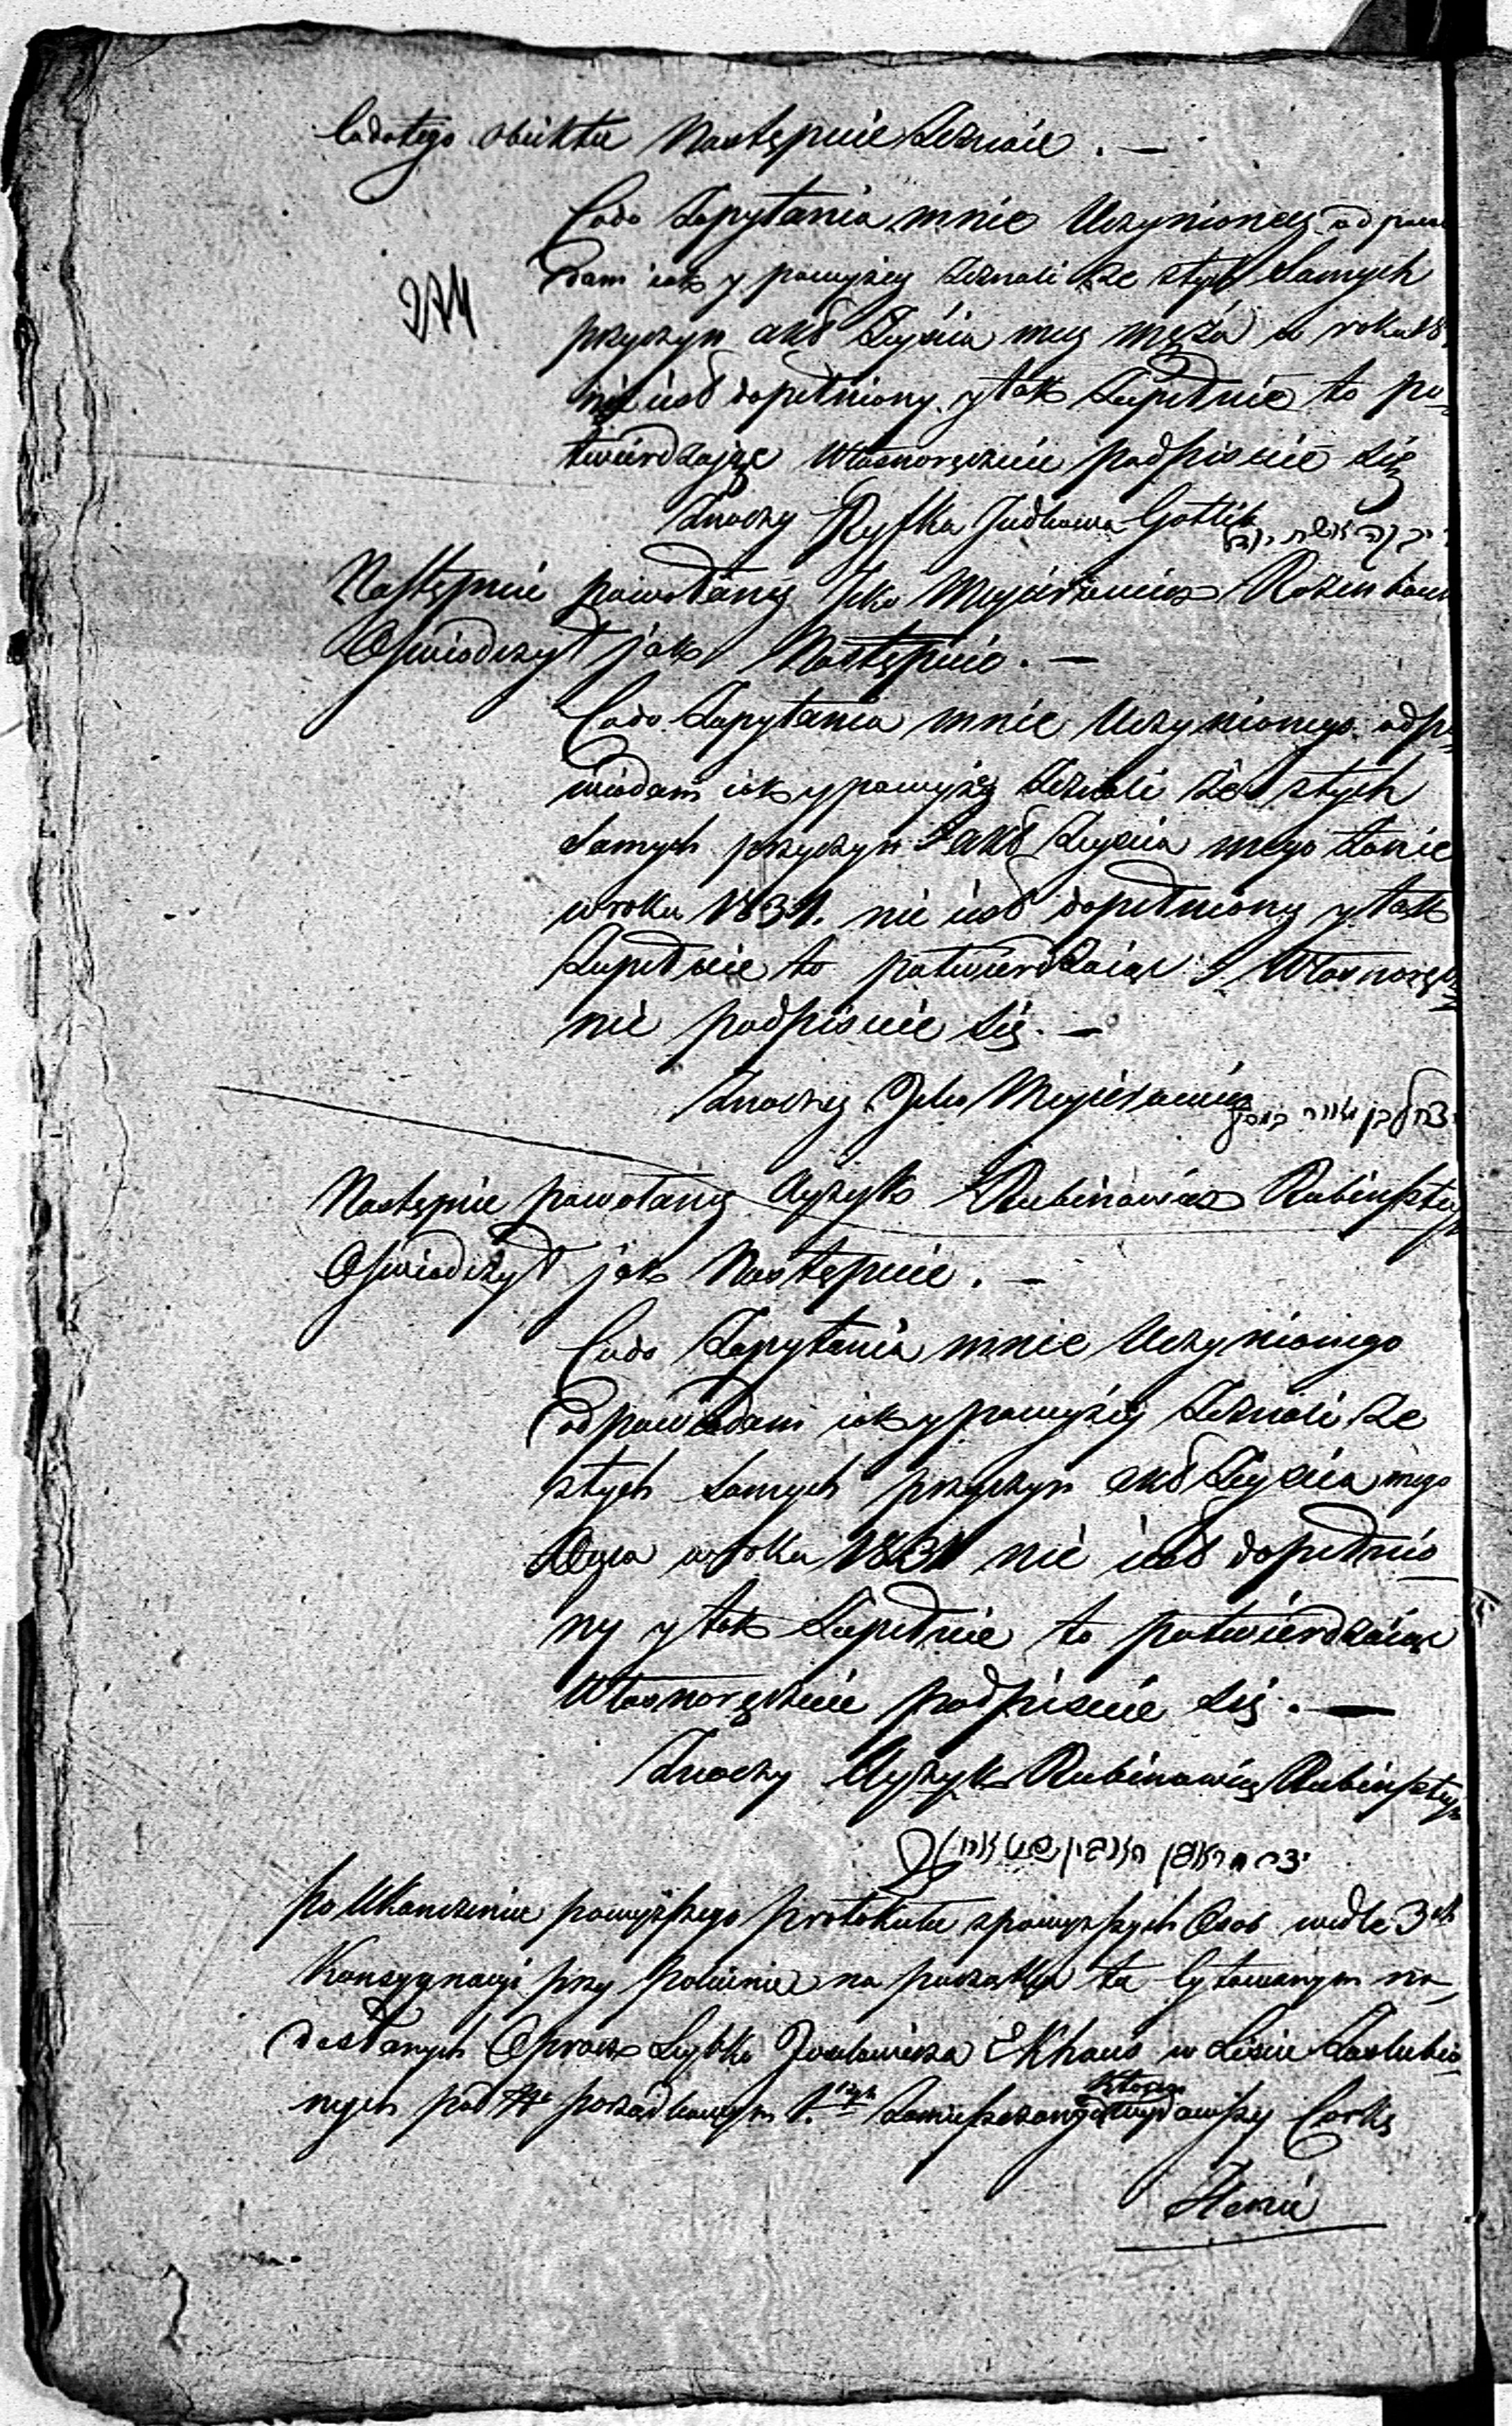 Codotego obiektu Następnie Zeznaie. —
Codo Zapytania mnie Uczynioney odpowia
dam iak y powyżey zeznali że ztych Samych
274
przyczyn akt Zeyścia meg męża w roku 18
nie iest dopełniony y tak Zupełnie to po-
twierdzaiąc Własnoręcznie podpisuie się
Znaczy Ryfka Judkowa Gotlib
Następnie powołany Icko Meyierowicz Rozenbaum
Oświadczył jak Następnie. —
Codo Zapytania mnie Uczynionego odpo
wiadam iak y powyżey Zeznali że ztych
Samych przyczyn akt Zeyścia mego
w roku 1831. nie iest dopełniony y tak
Zupełnie to potwierdzaiąc Własnoręcz
nie podpisuie Się. —
Znaczy Icko Meyierowicz
Następnie powołany Ayzyk Rubinowicz Rubinszteyn
Oświadczył jak Następnie. —
Codo Zapytania mnie Uczynionego
odpowiadam iak y powyżey Zeznali że
ztych Samych przyczyn akt Zeyścia mego
Oyca w roku 1831 nie iest dopełnio
ny y tak Zupełnie to potwierdzaiąc
Własnoręcznie podpisuie Się. —
Znaczy Ayzyk Rubinowicz Rubinszteyn
po Ukończeniu powyższego protokułu zpowyższych Osób wedle 3ch
Konsygnacyi przy Poleceniu na początku tu Cytowanym na-
desłanych Oprócz Leybki Joskowicza Ekhaus w Liście Zaslubio
nych pod No porządkowym 1. Zamieszczonego który wydawszy Corkę
Ztąnie